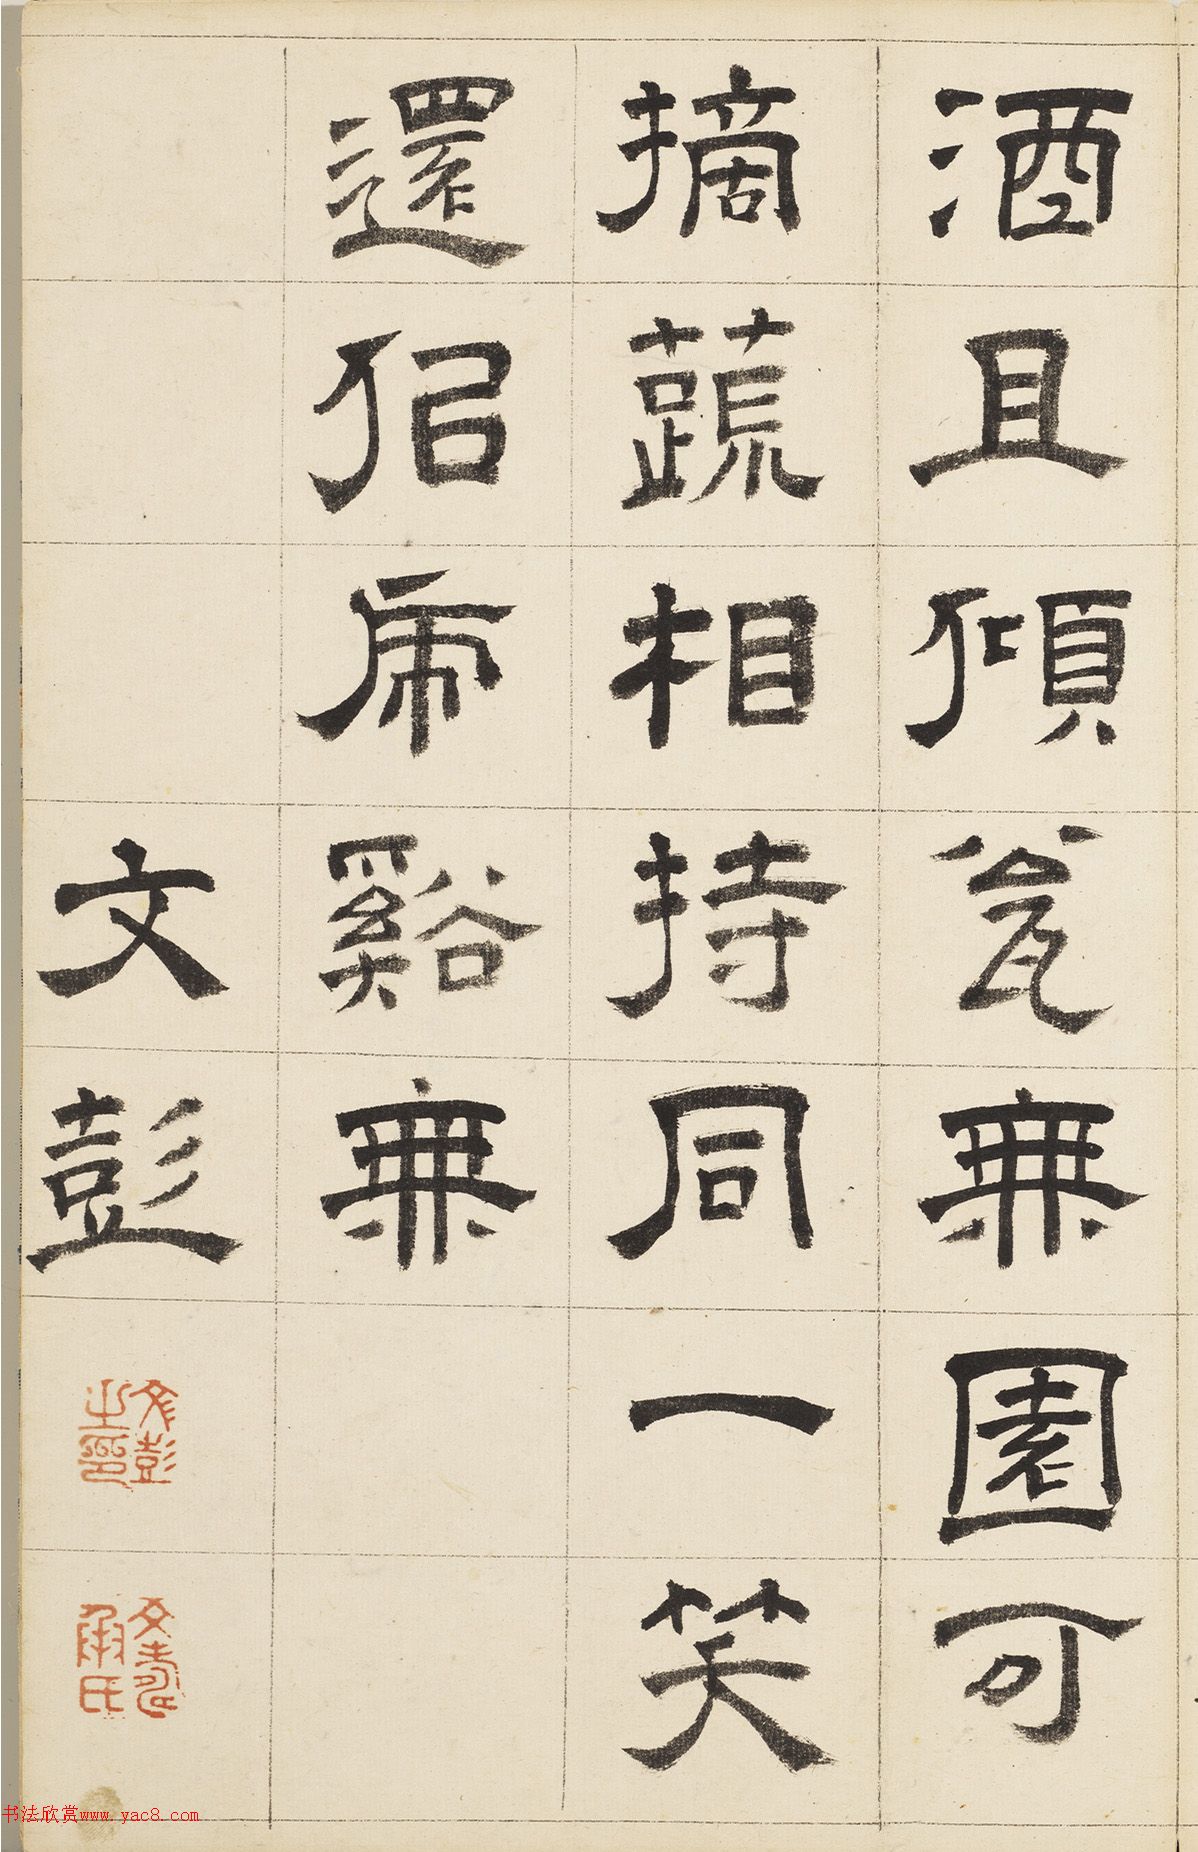 酒且傾瓮無園可
摘蔬相持同一笑
還侣虎谿無
文彭
文彭之印
文壽承氏
书法欣赏www.yac8.com